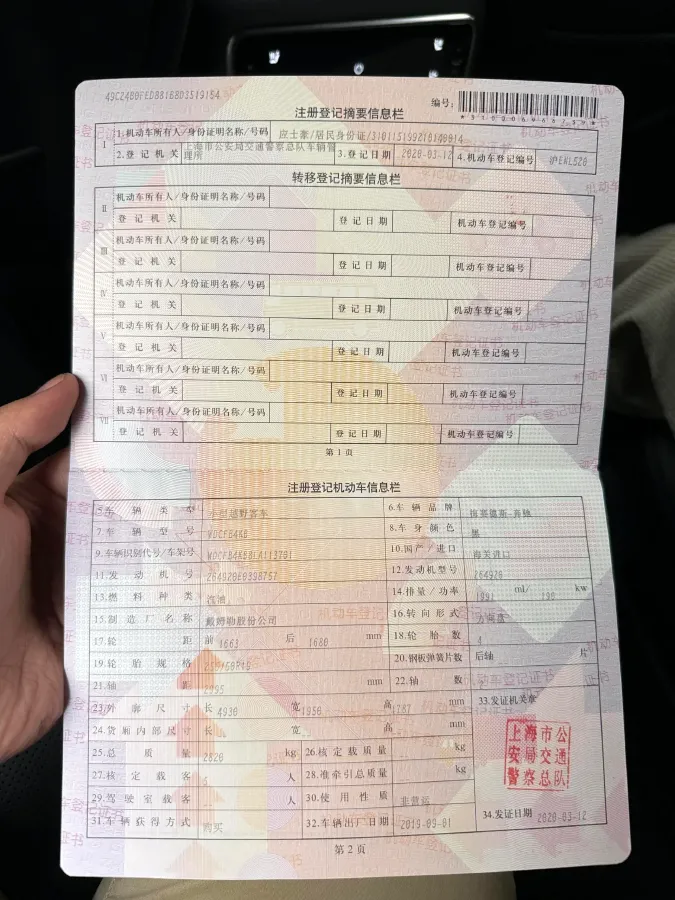 编号:
注册登记摘要信息栏
I
1.机动车所有人/身份证明名称/号码 应士豪/居民身份证/
2.登记机关 上海市公安局交通警察总队车辆管理所 3.登记日期 2020-03-12 4.机动车登记编号
转移登记摘要信息栏
II
机动车所有人/身份证明名称/号码
登记机关 登记日期 机动车登记编号
III
机动车所有人/身份证明名称/号码
登记机关 登记日期 机动车登记编号
IV
机动车所有人/身份证明名称/号码
登记机关 登记日期 机动车登记编号
V
机动车所有人/身份证明名称/号码
登记机关 登记日期 机动车登记编号
VI
机动车所有人/身份证明名称/号码
登记机关 登记日期 机动车登记编号
VII
机动车所有人/身份证明名称/号码
登记机关 登记日期 机动车登记编号
第1页
注册登记机动车信息栏
5.车辆类型 小型越野客车 6.车辆品牌 梅赛德斯-奔驰
7.车辆型号 WDCFB4KB 8.车身颜色 黑
9.车辆识别代号/车架号 10.国产/进口 海关进口
11.发动机号 12.发动机型号 264920
13.燃料种类 汽油 14.排量/功率 1991 ml/ 190 kw
15.制造厂名称 戴姆勒股份公司 16.转向形式 方向盘
17.轮距 前 1663 后 1680 mm 18.轮胎数 4
19.轮胎规格 20.钢板弹簧片数 后轴 片
21.轴距 2995 mm 22.轴数
23.外廓尺寸 长 4930 宽 1950 高 1787 mm 33.发证机关章
24.货厢内部尺寸 长 宽 高 mm
25.总质量 2820 kg 26.核定载质量 kg
27.核定载客 5 人 28.准牵引总质量 kg
29.驾驶室载客 -- 人 30.使用性质 非营运
31.车辆获得方式 购买 32.车辆出厂日期 2019-09-01 34.发证日期 2020-03-12
上海市公
安局交通
警察总队
第2页